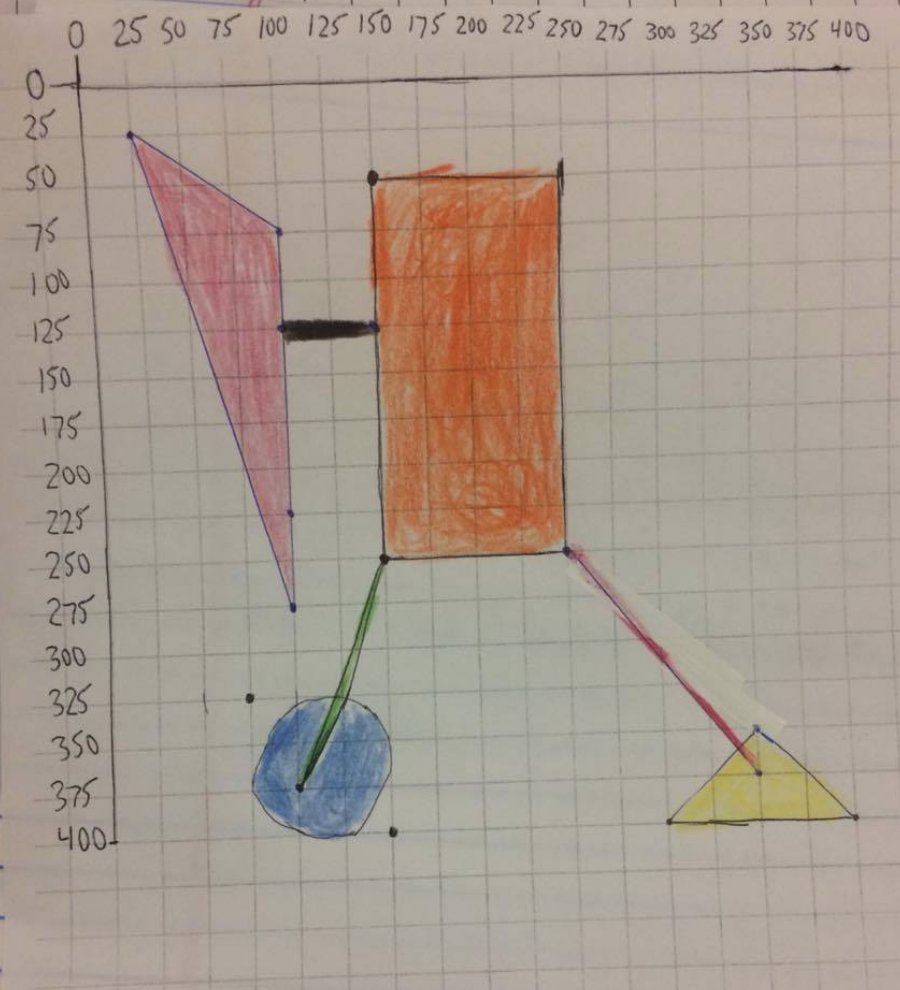 0 25 50 75 100 125 150 175 200 225 250 275 300 325 350 375 400
0
25
50
75
100
125
150
175
200
225
250
275
300
325
350
375
400